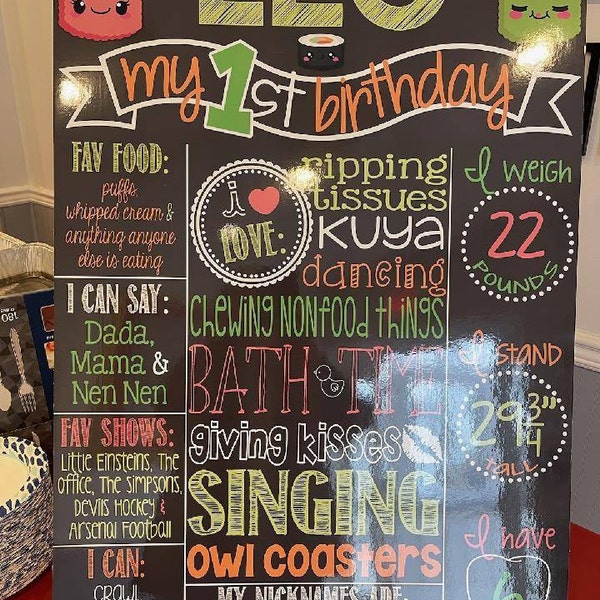 LEO
my 1st birthday
FAV FOOD:
puffs,
whipped cream &
anything anyone
else is eating
I CAN SAY:
Dada,
Mama &
Nen Nen
FAV SHOWS:
Little Einsteins, The
Office, The Simpsons,
Devils Hockey &
Arsenal Football
I CAN:
CRAWL
i ♥
LOVE:
ripping
tissues
KUYA
dancing
CHEWING NONFOOD THINGS
BATH TIME
giving kisses
SINGING
owl coasters
MY NICKNAMES ARE:
I WEIGH
22
POUNDS
I STAND
29 3/4"
TALL
I have
6